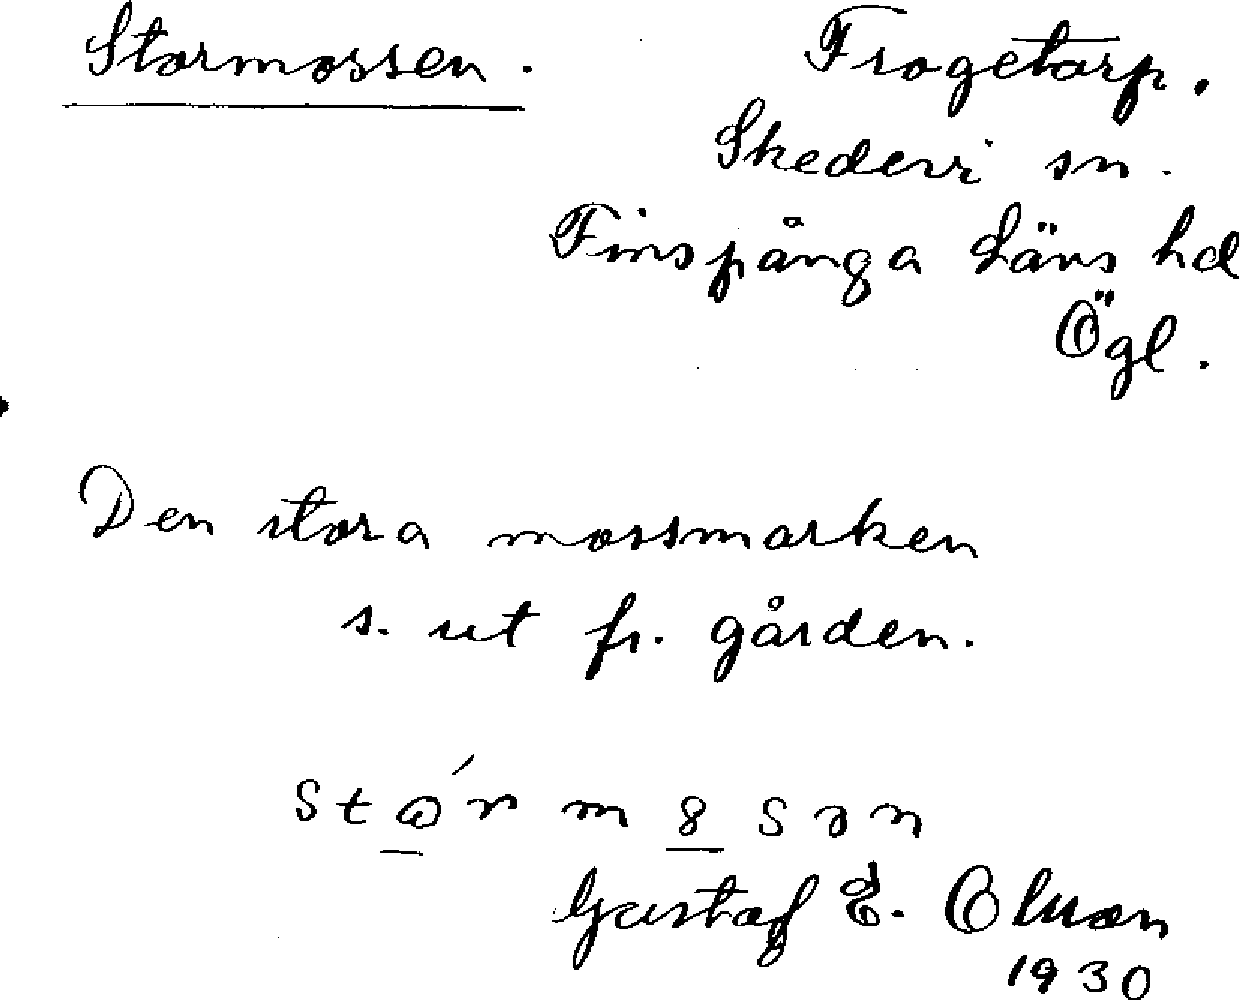 Stormossen.
Frogetorp.
Skedevi sn.
Finspånga läns hd
Ögl.
Den stora mossmarken
s. ut fr. gården.
Gustaf E. Olsson
1930